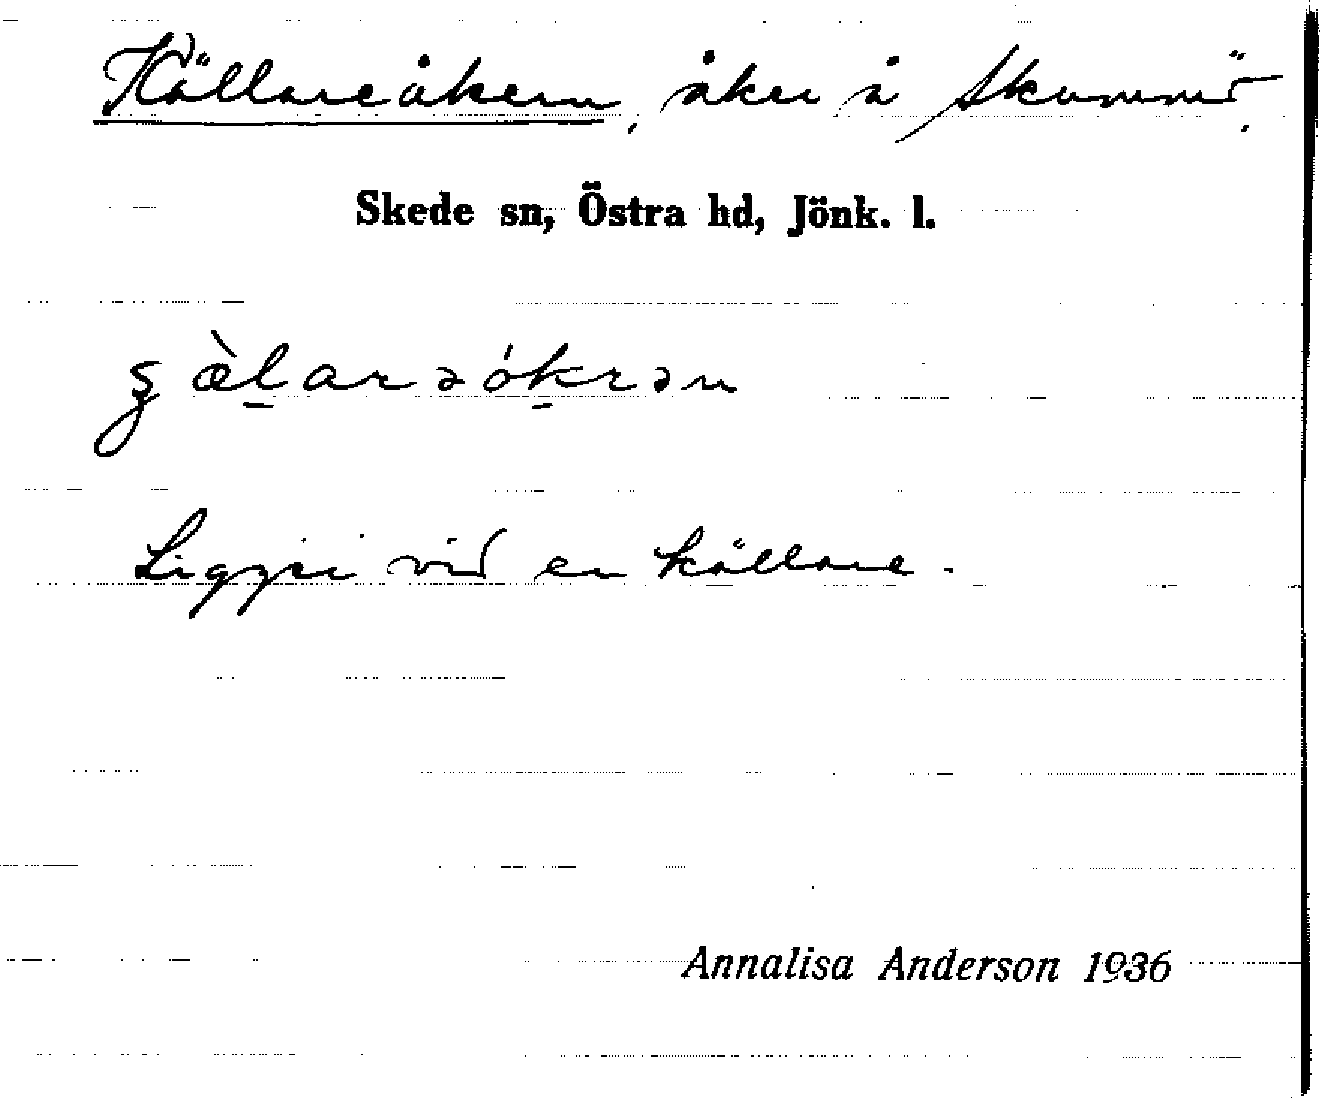 Källareåkern, åker å Skummö.
Skede sn, Östra hd, Jönk. l.
Ligger vid en källare.
Annalisa Anderson 1936